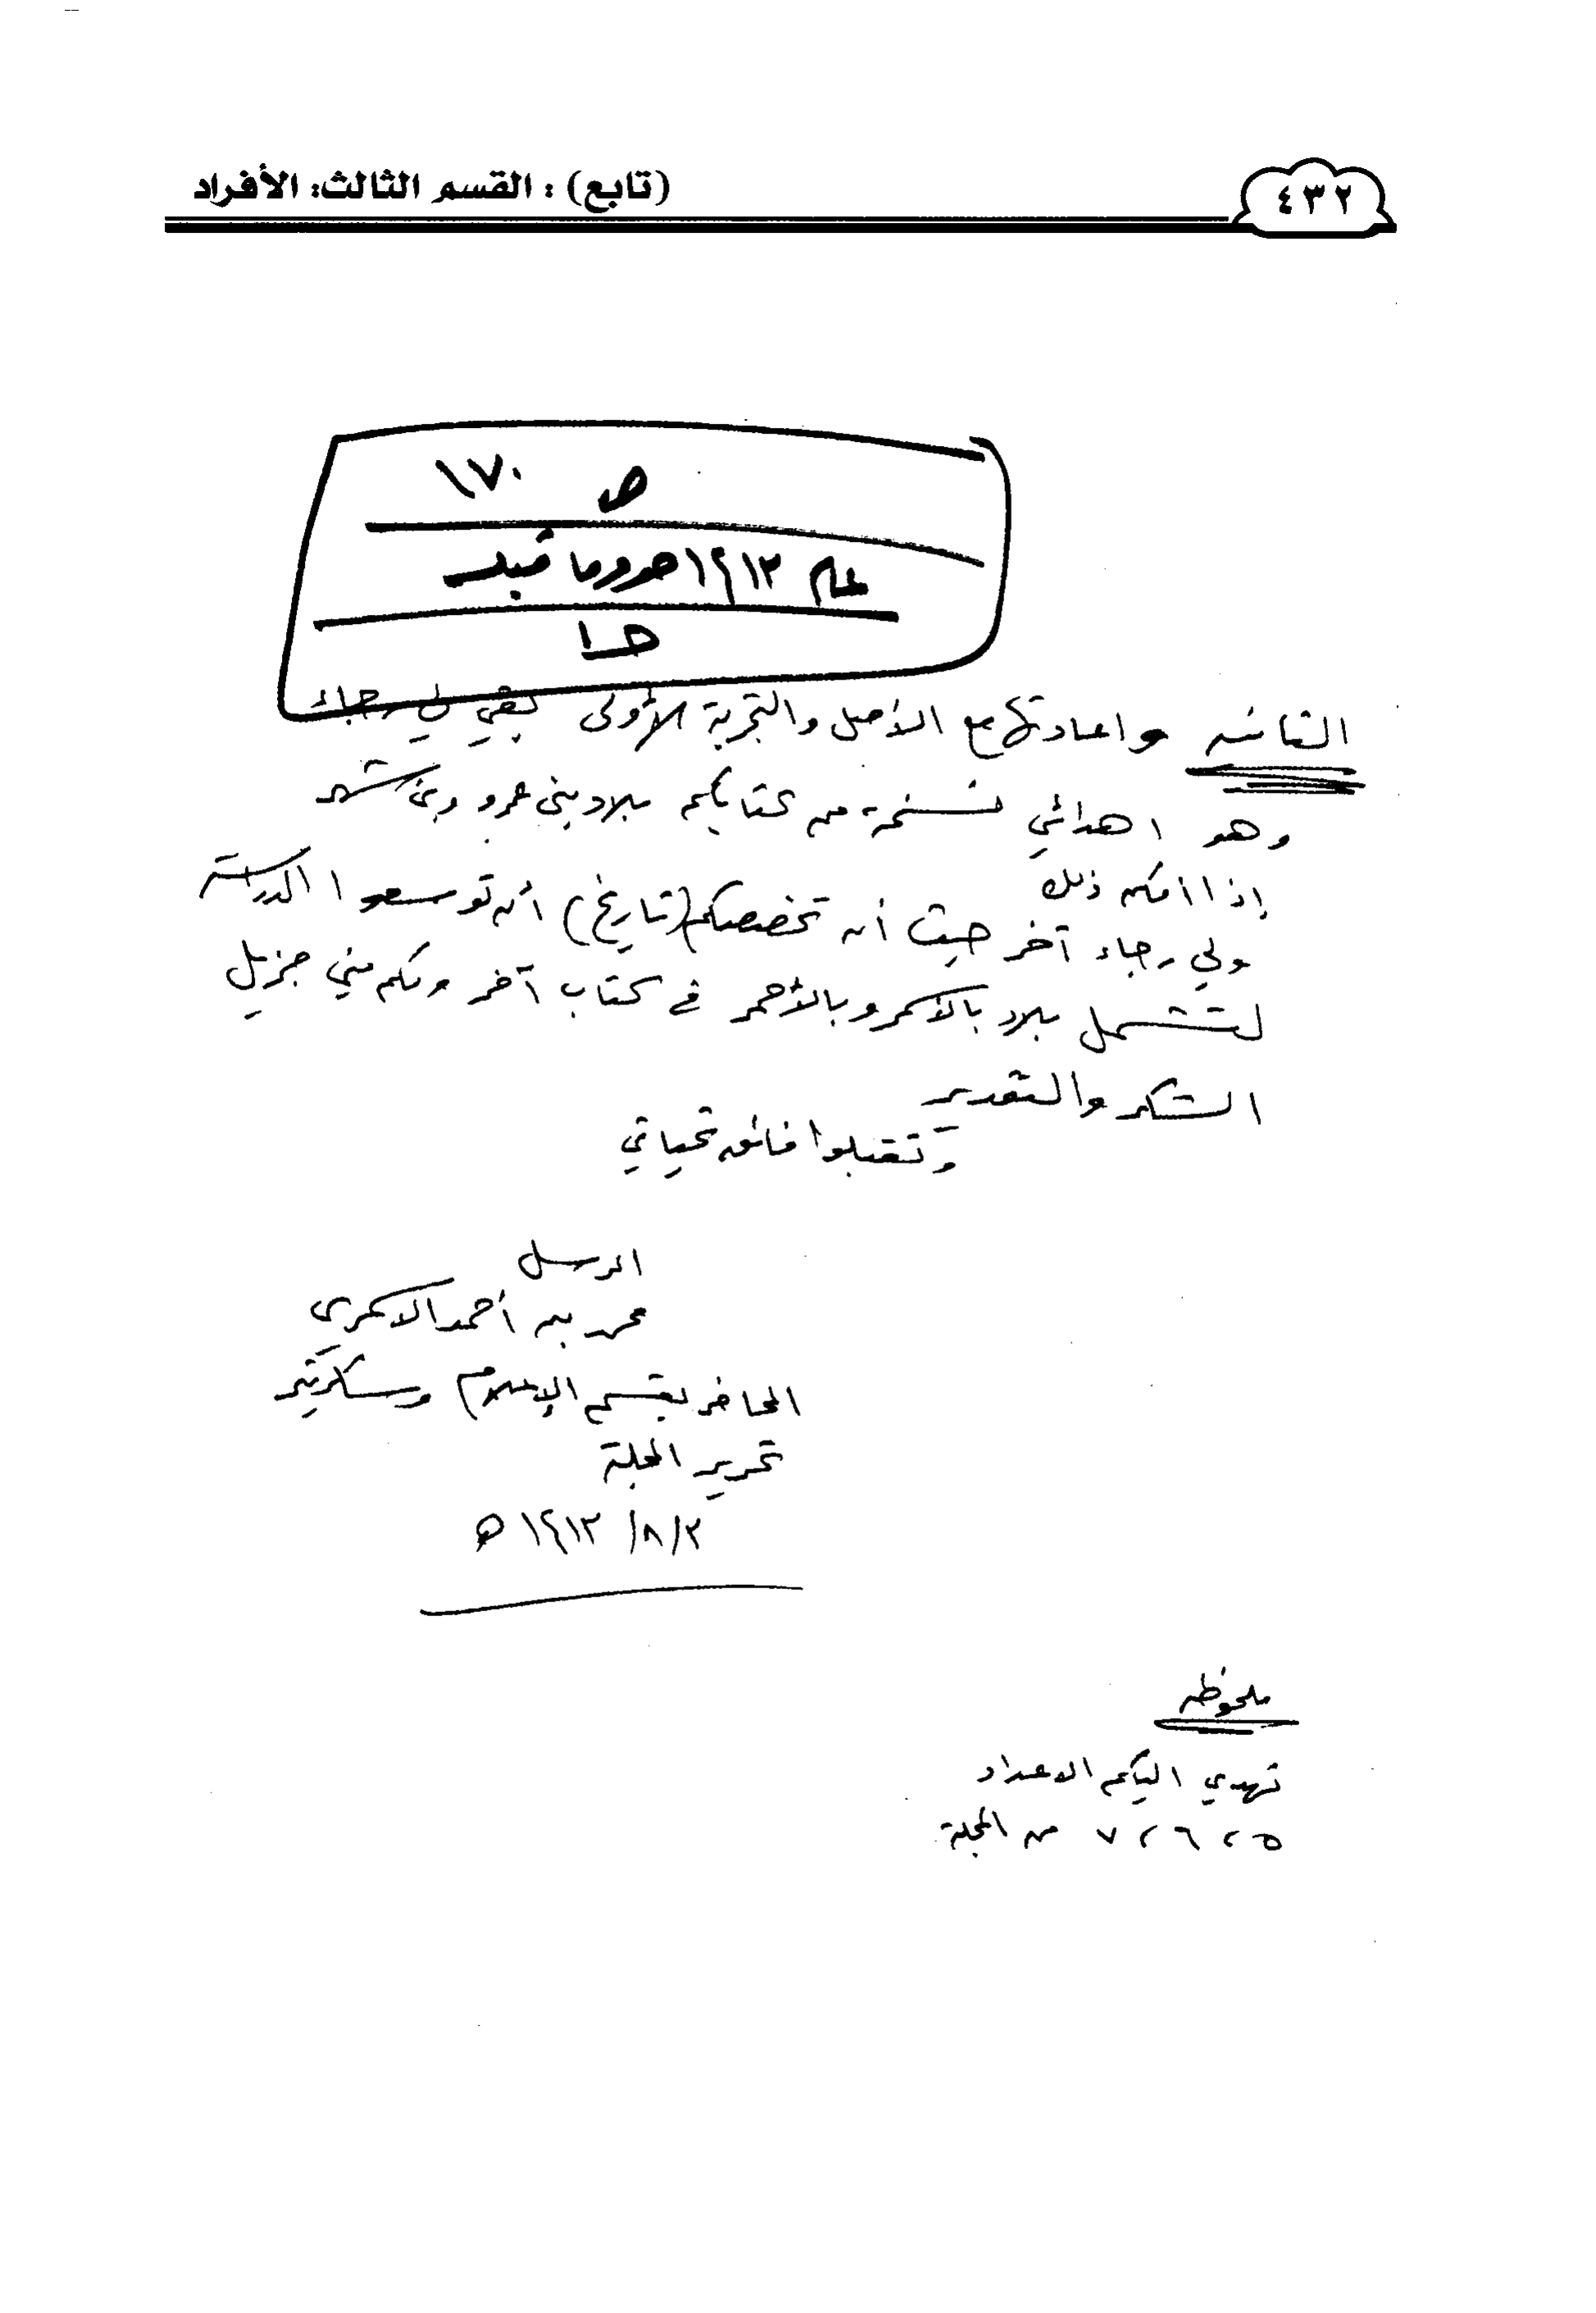 ٤٣٢
(تابع) : القسم الثالث: الأفراد
ص ١٧٠
عام ١٤١٣هـ وما قبل
الثانية واعادتها مع الأصل والتجربة الأولى بقي لي رجاء
وهو اهدائي نسخة من كتابكم بلاد بني عمرو وبني شهر
إذا أمكن ذلك
ولي رجاء آخر حيث أن تخصصكم (تاريخ) أن توسعوا الدراسة
لتشمل بلاد بالاسمر وبالأحمر في كتاب آخر ولكم مني جزيل
الشكر والتقدير
وتقبلوا فائق تحياتي
المرسل
محمد بن أحمد الاسمري
المحاضر بقسم الإعلام وسكرتير
تحرير المجلة
٣/٨/١٤١٣ ه
ملحوظه
نهدي اليكم الاعداد
٥ ، ٦ ، ٧ من المجلة